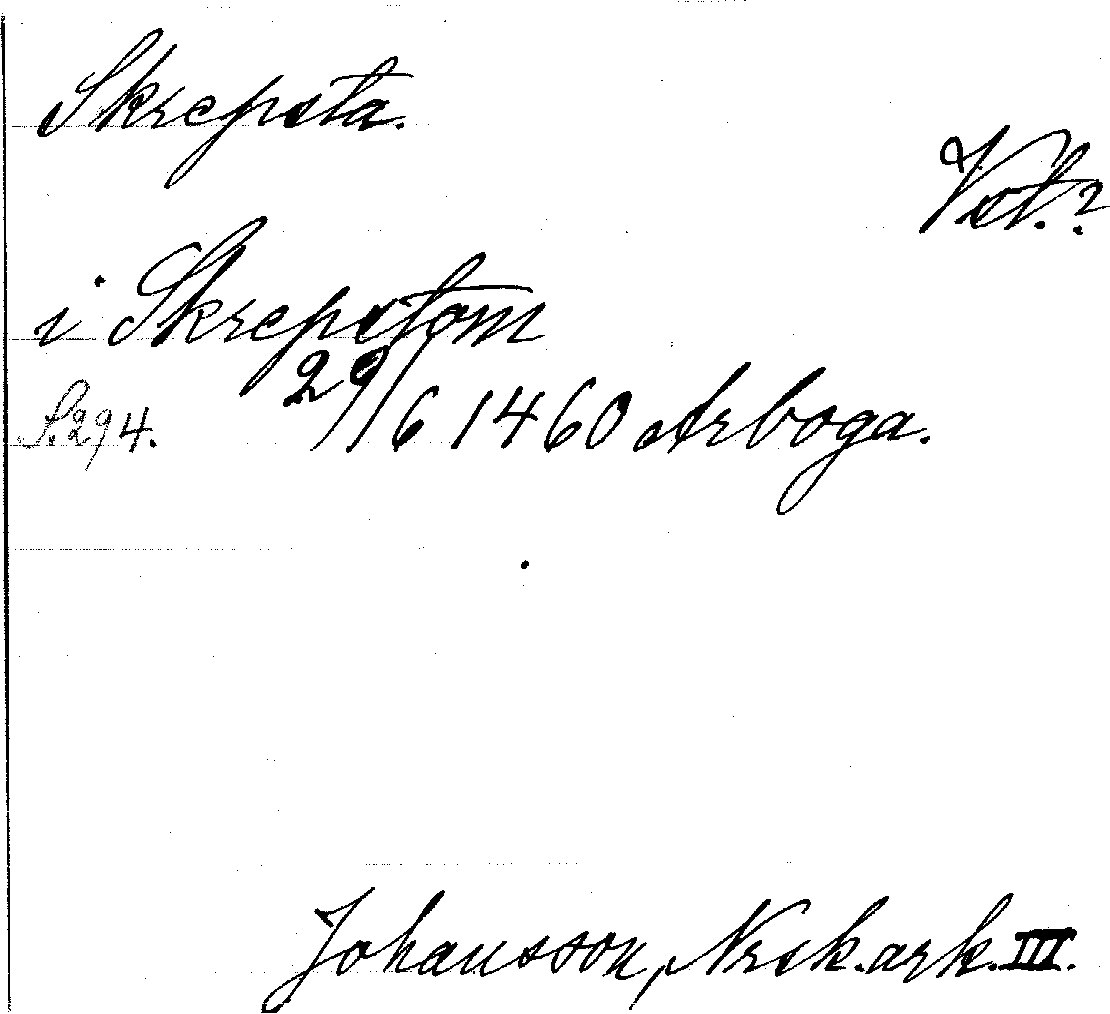 Skrepsta.
Vst.?
i Skrepstom
S. 294. 29/6 1460 Arboga.
Johansson, Nrsk. ark. III.